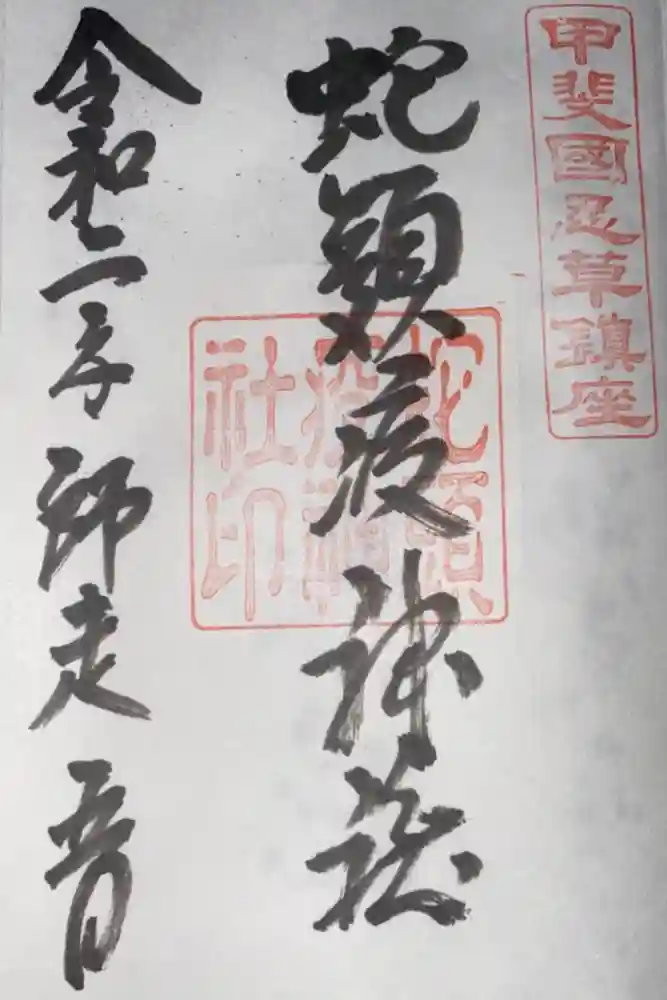 甲斐國忍草鎮座
蛇頭疫神社
蛇頭疫神社印
令和二年師走